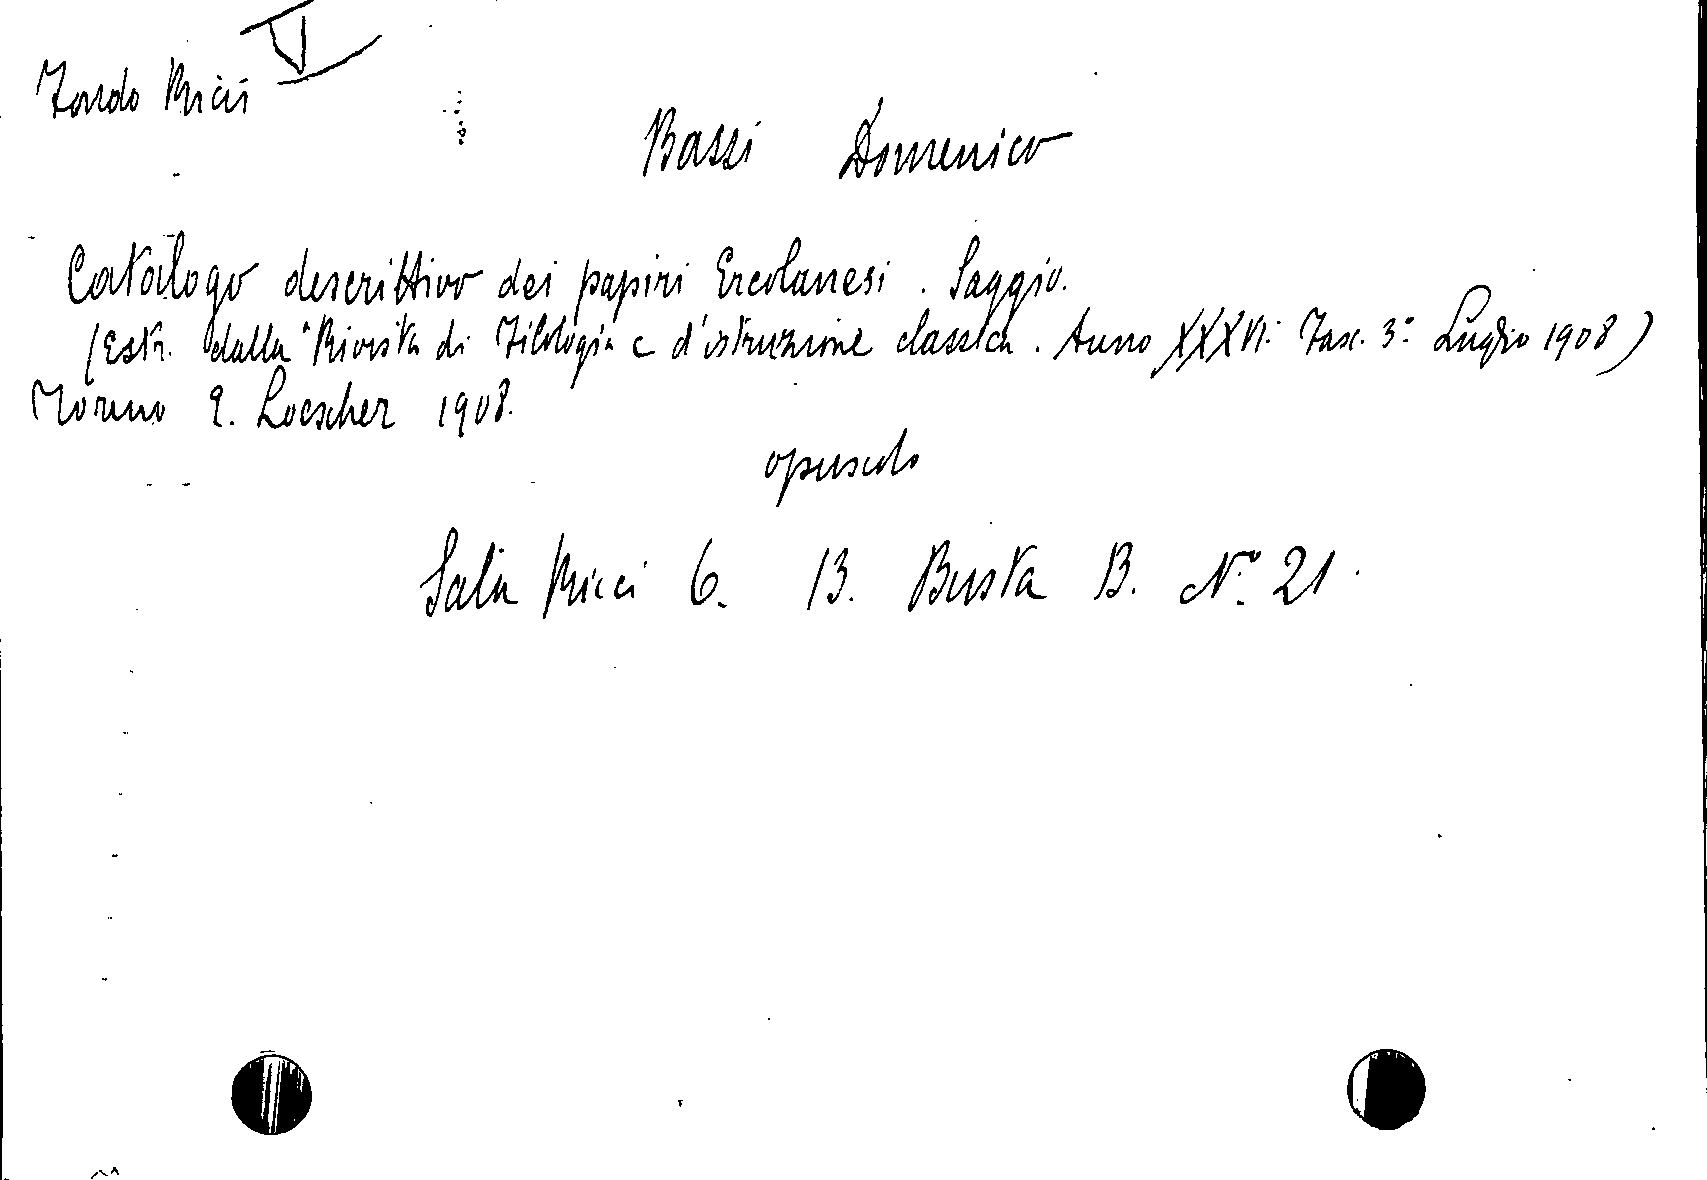 V
Fondo Ricci
Bassi Domenico
Catalogo descrittivo dei papiri Ercolanesi. Saggio.
(Estr. dalla "Rivista di Filologia e d'istruzione classica. Anno XXXVI. Fasc. 3º Luglio 1908)
Torino E. Loescher 1908.
opuscolo
Sala Ricci 6. 13. Busta B. Nº 21.